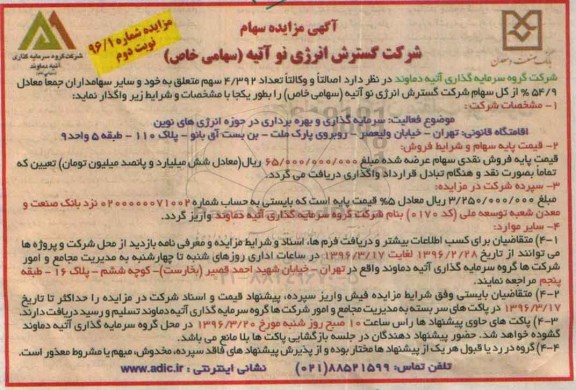 آگهی مزایده سهام
شرکت گسترش انرژی نو آتیه (سهامی خاص)
مزایده شماره ۹۶/۱
نوبت دوم
شرکت گروه سرمایه گذاری
آتیه دماوند
بانک صنعت و معدن
شرکت گروه سرمایه گذاری آتیه دماوند در نظر دارد اصالتاً و وکالتاً تعداد ۴/۳۹۲ سهم متعلق به خود و سایر سهامداران جمعاً معادل
۵۴/۹ % از کل سهام شرکت گسترش انرژی نو آتیه (سهامی خاص) را بطور یکجا با مشخصات و شرایط زیر واگذار نماید:
۱- مشخصات شرکت:
موضوع فعالیت: سرمایه گذاری و بهره برداری در حوزه انرژی های نوین
اقامتگاه قانونی: تهران - خیابان ولیعصر - روبروی پارک ملت - بن بست آق بانو - پلاک ۱۱۰ - طبقه ۵ واحد۹
۲- قیمت پایه سهام و شرایط فروش:
قیمت پایه فروش نقدی سهام عرضه شده مبلغ ۶۵/۰۰۰/۰۰۰/۰۰۰ ریال(معادل شش میلیارد و پانصد میلیون تومان) تعیین که
تماماً بصورت نقد و هنگام تبادل قرارداد واگذاری دریافت می گردد.
۳- سپرده شرکت در مزایده:
مبلغ ۳/۲۵۰/۰۰۰/۰۰۰ ریال معادل ۵% قیمت پایه است که بایستی به حساب شماره ۰۲۰۰۰۰۰۰۷۱۰۰۲ نزد بانک صنعت و
معدن شعبه توسعه ملی (کد ۰۱۷۰) بنام شرکت گروه سرمایه گذاری آتیه دماوند واریز گردد.
۴- سایر موارد:
۴-۱) متقاضیان برای کسب اطلاعات بیشتر و دریافت فرم ها، اسناد و شرایط مزایده و معرفی نامه بازدید از محل شرکت و پروژه ها
می توانند از تاریخ ۱۳۹۶/۲/۲۸ لغایت ۱۳۹۶/۳/۱۷ در ساعات اداری روزهای شنبه تا چهارشنبه به مدیریت مجامع و امور
شرکت ها گروه سرمایه گذاری آتیه دماوند واقع در تهران - خیابان شهید احمد قصیر (بخارست)- کوچه ششم - پلاک ۱۶ - طبقه
پنجم مراجعه نمایند.
۴-۲) متقاضیان بایستی وفق شرایط مزایده فیش واریز سپرده، پیشنهاد قیمت و اسناد شرکت در مزایده را حداکثر تا تاریخ
۱۳۹۶/۳/۱۷ در پاکت های سر بسته به مدیریت مجامع و امور شرکت ها گروه سرمایه گذاری آتیه دماوند تسلیم و رسید دریافت دارند.
۴-۳) پاکت های حاوی پیشنهاد ها راس ساعت ۱۰ صبح روز شنبه مورخ ۱۳۹۶/۳/۲۰ در محل گروه سرمایه گذاری آتیه دماوند
گشوده خواهد شد. حضور پیشنهاد دهندگان در جلسه بازگشایی پاکت ها بلا مانع می باشد.
۴-۴) گروه در رد یا قبول هر یک از پیشنهاد ها مختار بوده و از پذیرش پیشنهاد های فاقد سپرده، مخدوش، مبهم یا مشروط معذور است.
تلفن تماس: ۸۸۵۲۱۵۹۹(۰۲۱) نشانی اینترنتی : www.adic.ir